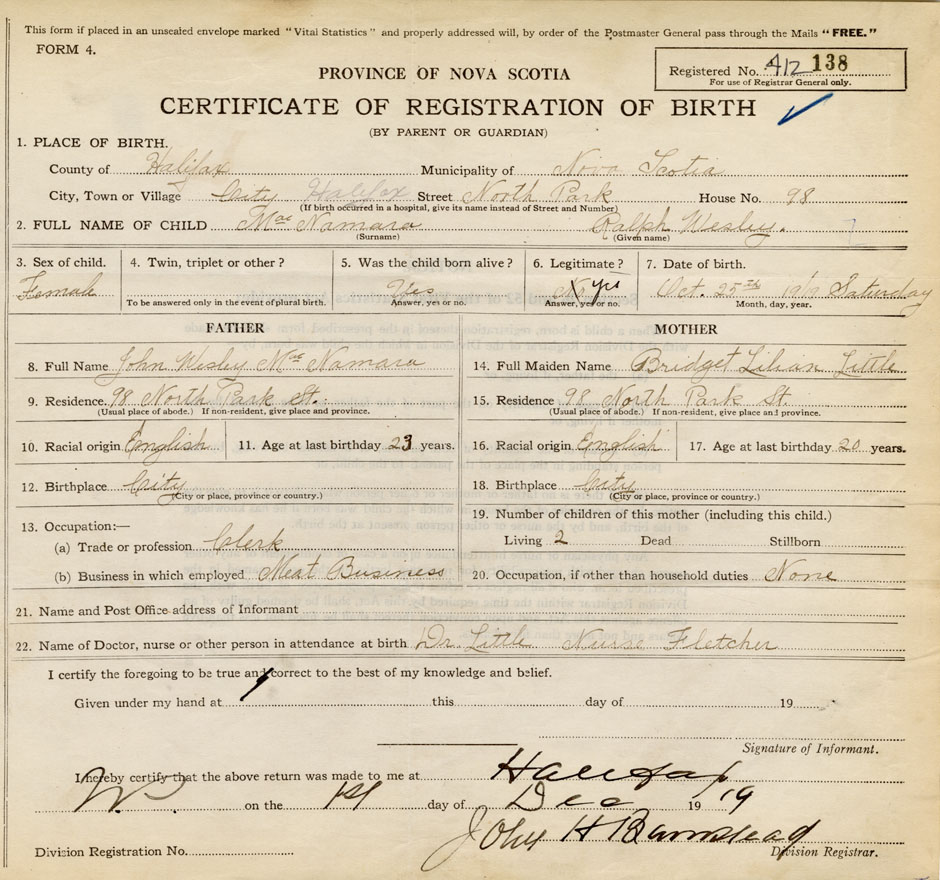 This form if placed in an unsealed envelope marked "Vital Statistics" and properly addressed will, by order of the Postmaster General pass through the Mails "FREE."
FORM 4.
Registered No. 412 138
For use of Registrar General only.
PROVINCE OF NOVA SCOTIA
CERTIFICATE OF REGISTRATION OF BIRTH
(BY PARENT OR GUARDIAN)
1. PLACE OF BIRTH.
County of Halifax Municipality of Nova Scotia
City, Town or Village City Halifax Street North Park House No. 98
(If birth occurred in a hospital, give its name instead of Street and Number)
2. FULL NAME OF CHILD MacNamara Ralph Wesley.
(Surname) (Given name)
3. Sex of child. 4. Twin, triplet or other? 5. Was the child born alive? 6. Legitimate? 7. Date of birth.
Female Yes yes Oct. 25th 1919 Saturday
To be answered only in the event of plural birth. Answer, yes or no. Answer, yes or no. Month, day, year.
FATHER MOTHER
8. Full Name John Wesley MacNamara 14. Full Maiden Name Bridget Lilian Little
9. Residence. 98 North Park St. 15. Residence 98 North Park St.
(Usual place of abode.) If non-resident, give place and province. (Usual place of abode.) If non-resident, give place and province.
10. Racial origin English 11. Age at last birthday 23 years. 16. Racial origin English 17. Age at last birthday 20 years.
12. Birthplace City 18. Birthplace City
(City or place, province or country.) (City or place, province or country.)
13. Occupation:— 19. Number of children of this mother (including this child.)
(a) Trade or profession Clerk Living 2 Dead Stillborn
(b) Business in which employed Meat Business 20. Occupation, if other than household duties None
21. Name and Post Office address of Informant
22. Name of Doctor, nurse or other person in attendance at birth Dr. Little Nurse Fletcher
I certify the foregoing to be true and correct to the best of my knowledge and belief.
Given under my hand at this day of 19
Signature of Informant.
I hereby certify that the above return was made to me at Halifax
on the 1st day of Dec 19 19
John H Barnstead
Division Registration No. Division Registrar.